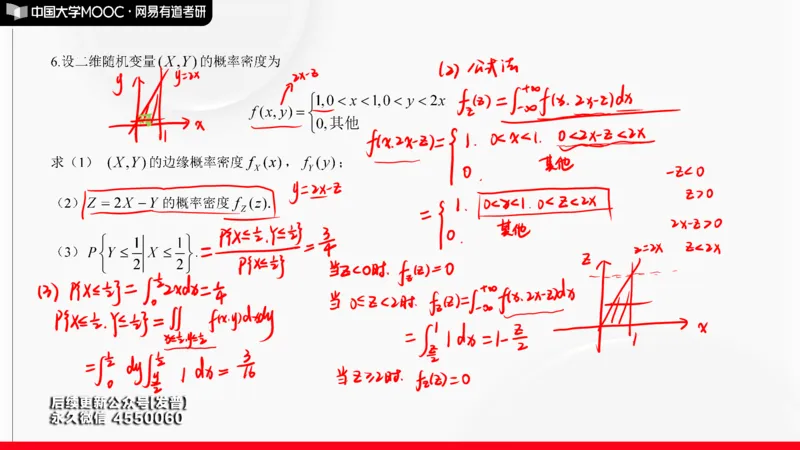 中国大学MOOC·网易有道考研
6.设二维随机变量(X,Y)的概率密度为
y
y=2x
x
2x-z
f(x,y)={1,0<x<1,0<y<2x
0,其他
求（1） (X,Y)的边缘概率密度 f_X(x)，f_Y(y)；
y=2x-z
（2） Z=2X-Y的概率密度 f_Z(z).
（3） P{Y≤1/2|X≤1/2}. = P{X≤1/2,Y≤1/2}/P{X≤1/2} = 3/4
(3) P{X≤1/2}=∫_0^{1/2} 2xdx=1/4
P{X≤1/2,Y≤1/2}=∬_{x≤1/2,y≤1/2} f(x,y)dxdy
=∫_0^{1/2} dy∫_{y/2}^{1/2} 1 dx = 3/16
(2) 公式法
f_Z(z)=∫_{-∞}^{+∞} f(x,2x-z)dx
f(x,2x-z)={1, 0<x<1, 0<2x-z<2x
0. 其他
={1, 0<x<1, 0<z<2x
0. 其他
-z<0
z>0
2x-z>0
z<2x
当z<0时, f_Z(z)=0
当0≤z<2时, f_Z(z)=∫_{-∞}^{+∞} f(x,2x-z)dx
=∫_{z/2}^1 1dx=1-z/2
当z≥2时, f_Z(z)=0
z
z=2x
1
x
后续更新公众号[发普]
永久微信 4550060